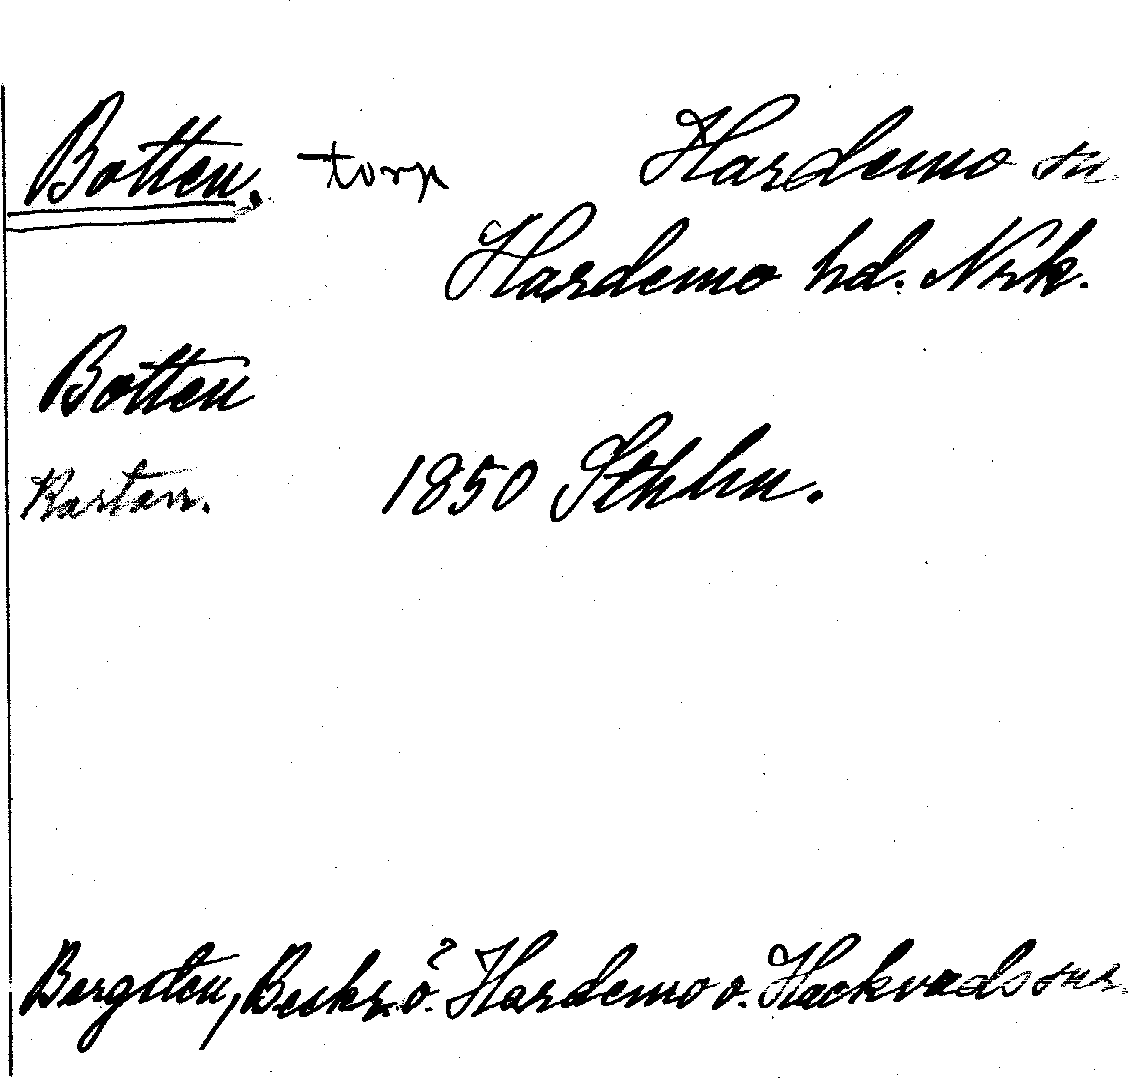 Botten. torp Hardemo sn
Hardemo hd. Nrk.
Botten
Kartan. 1850 Sthlm.
Bergsten, Beskr. ö. Hardemo o. Hackvads snr.